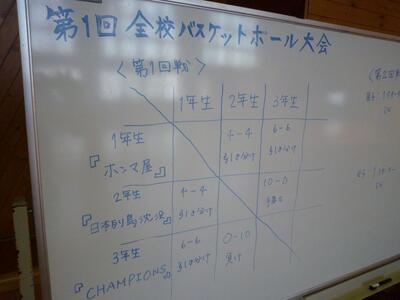 第1回 全校バスケットボール大会
〈第1回戦〉
1年生 2年生 3年生
1年生
『ホンマ屋』
4-4
引き分け
6-6
引き分け
2年生
『日本列島沈没』
4-4
引き分け
10-0
3年生
『CHAMPIONS』
6-6
引き分け
0-10
負け
〈第2回戦